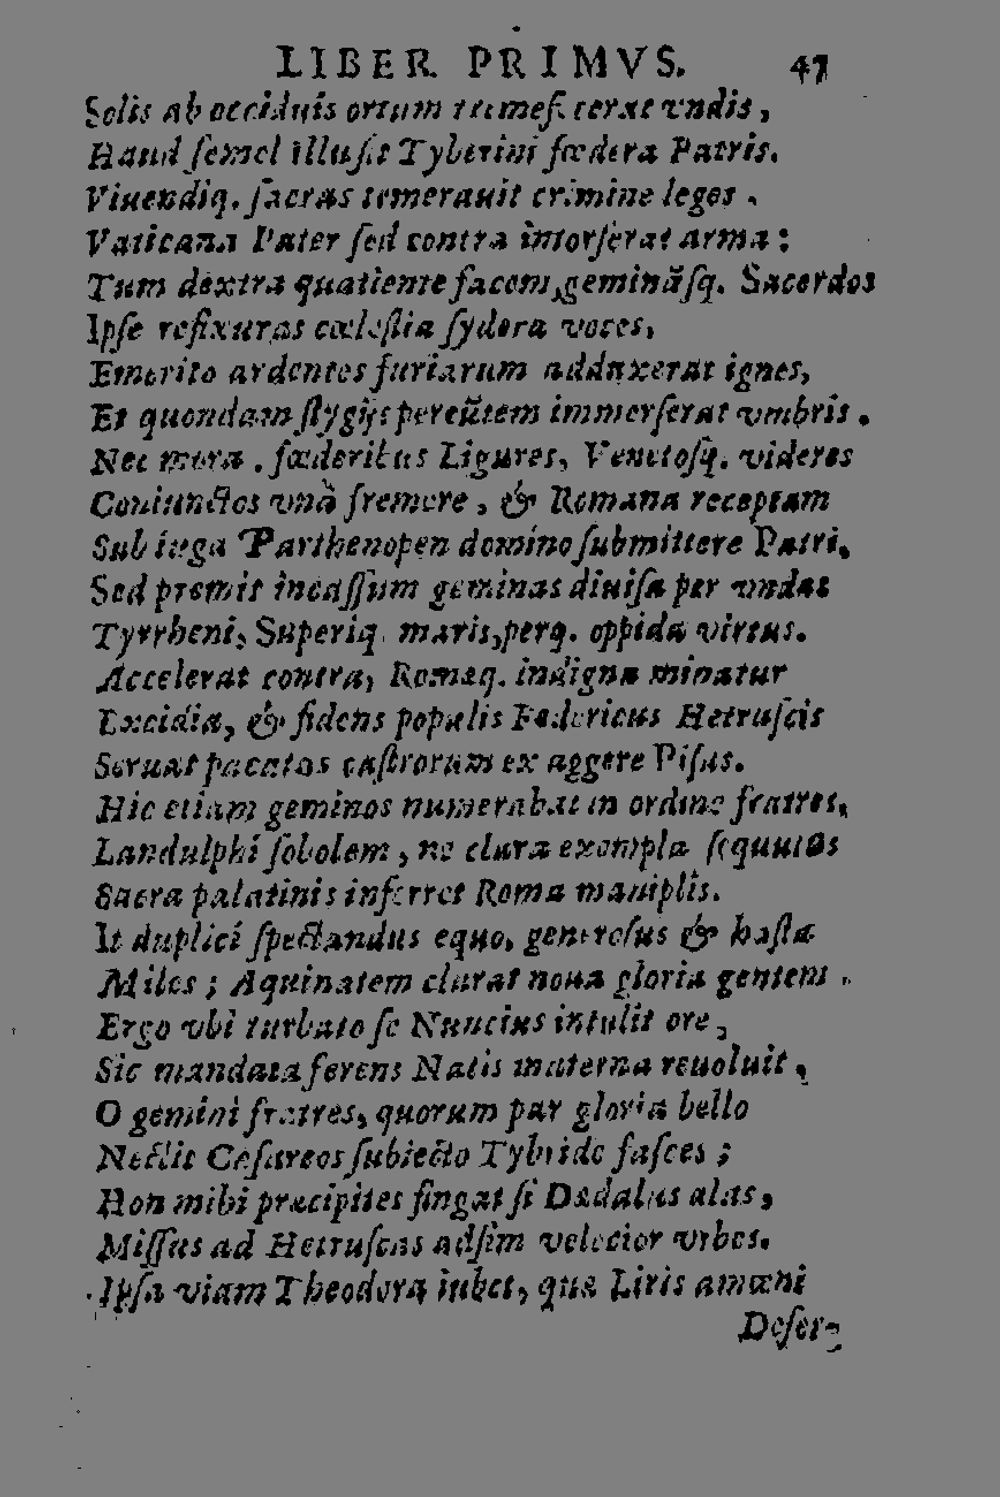 LIBER PRIMVS. 47
Solis ab occiduis ortum tumefecerat vndis,
Haud ſemel illuſit Tyberini fœdera Patris.
Viuendiq. ſacras temerauit crimine leges.
Vaticana Pater ſed contra intorſerat arma:
Tum dextra quatiente facem, geminãſq. Sacerdos
Ipſe refixuras cœleſtia ſydera voces,
Emerito ardentes furiarum adduxerat ignes,
Et quondam ſtygijs pereũtem immerſerat vmbris.
Nec mora. fœderibus Ligures, Venetoſq. videres
Coniunctos vnà fremere, & Romana receptam
Sub iuga Parthenopen domino ſubmittere Patri.
Sed premit incaſſum geminas diuiſa per vndas
Tyrrheni, Superiq. maris, perq. oppida virtus.
Accelerat contra, Romæq. indigna minatur
Excidia, & fidens populis Federicus Hetruſcis
Seruat pacatas caſtrorum ex aggere Piſas.
Hic etiam geminos numerabat in ordine fratres,
Landulphi ſobolem, ne clara exempla ſequutos
Sacra palatinis inferret Roma maniplis.
It duplici ſpectandus equo, generoſus & haſta
Miles; Aquinatem clarat noua gloria gentem.
Ergo vbi turbato ſe Nuncius intulit ore,
Sic mandata ferens Natis materna reuoluit,
O gemini fratres, quorum par gloria bello
Nectit Ceſareos ſubiecto Tybride faſces;
Hon mihi præcipites fingat ſi Dædalus alas,
Miſſus ad Hetruſcas adſim velocior vrbes.
Ipſa viam Theodora iubet, qua Liris amœni
Deſer-